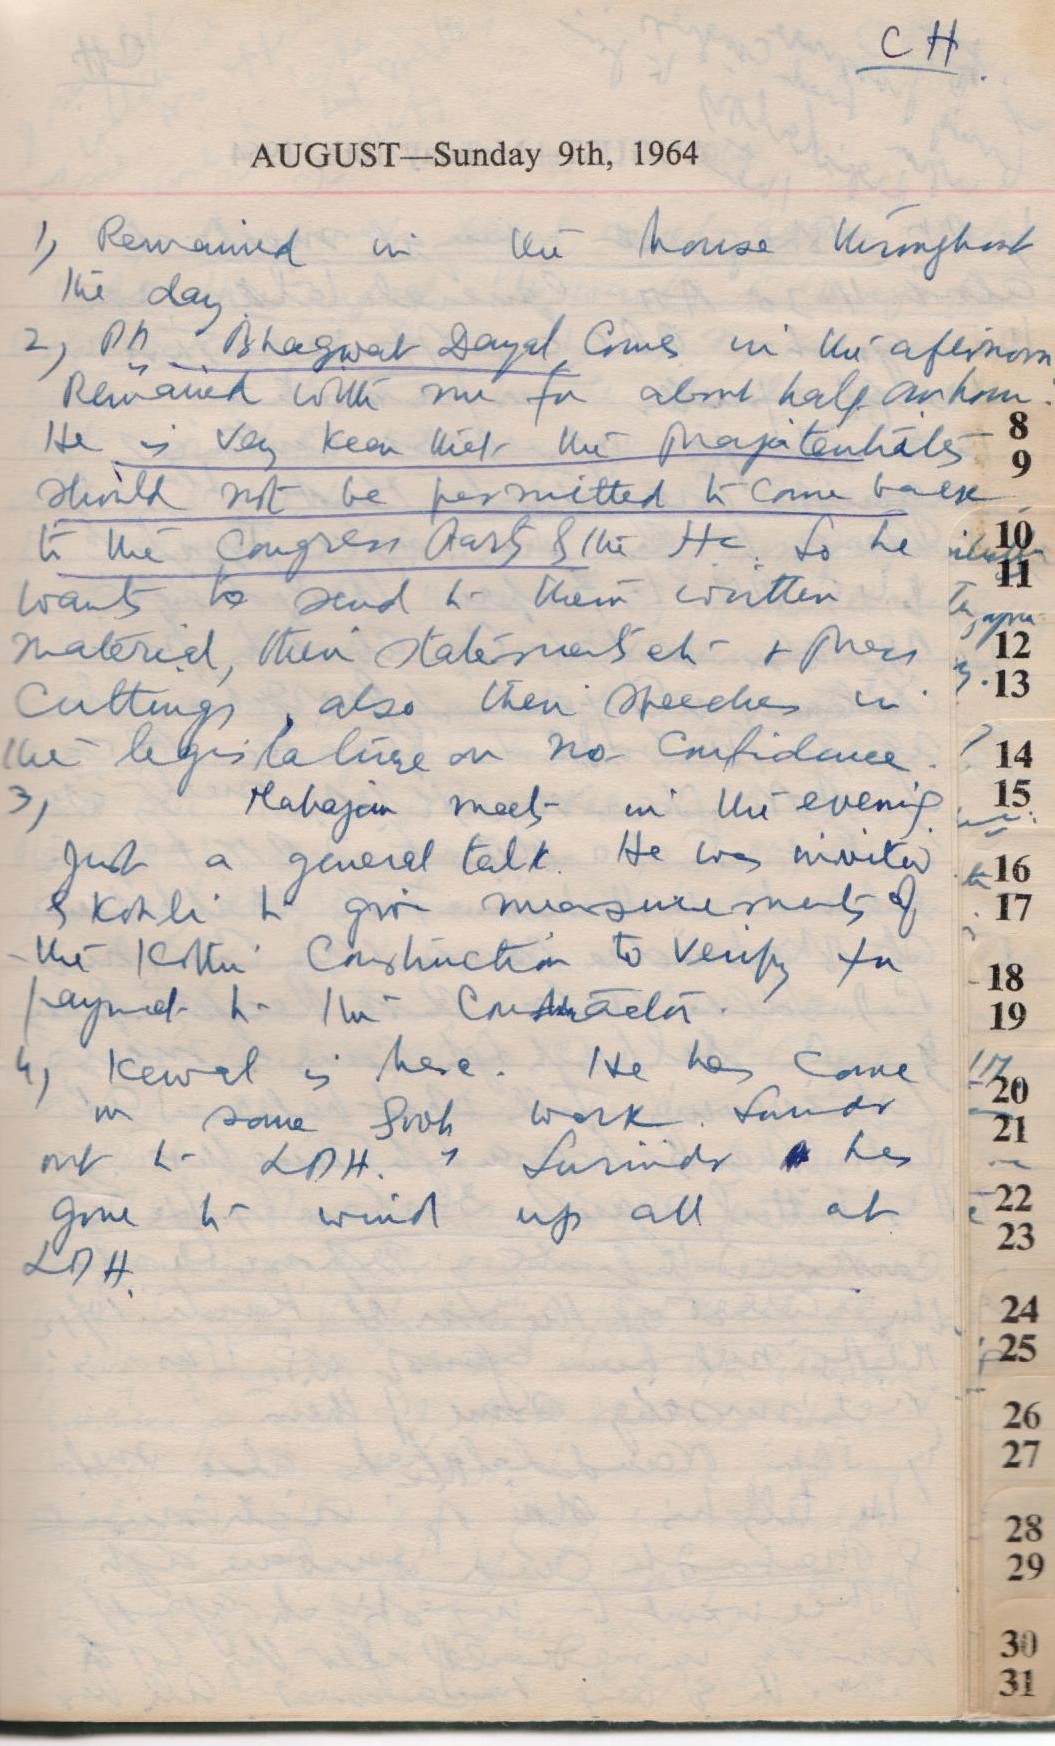 CH
AUGUST—Sunday 9th, 1964
1) Remained in the house throughout
the day
2) Bhagwat Dayal Comes in the afternoon
Remained with me for about half an hour.
He is very keen that the Prajatantrites
should not be permitted to come back
to the Congress Party & the HC. So he
wants to send to them written
material, their statements etc + Press
Cuttings, also their speeches in
the legislature on no confidence.
3) Mahajan meets in the evening
Just a general talk. He was invited
& Kohli to give measurements of
the Kothi Construction to verify for
payment to the Contractor.
4) Kewal is here. He has Come
in some work.
out to LDH. Surindr has
gone to wind up all at
LDH.
8
9
10
11
12
13
14
15
16
17
18
19
20
21
22
23
24
25
26
27
28
29
30
31